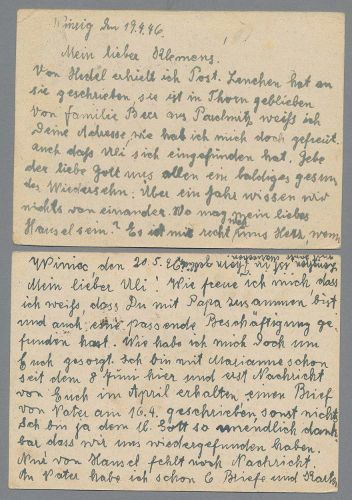 Winzig den 19.4.46.
Mein lieber Klemens!
Von Hedel erhielt ich Post. Lenchen hat an
sie geschrieben, sie ist in Thorn geblieben
Von Familie Beer aus weiß ich
Deine Adresse, wie hab ich mich doch gefreut.
auch daß Uli sich eingefunden hat. Gebe
der liebe Gott uns allen ein baldiges gesun
des Wiedersehn. Über ein Jahr wissen wir
nichts von einander. Wo mag mein liebes
Hansel sein? Es ist mir recht ums Herz, wenn
Winzig, den 20.5.46.
Mein lieber Uli! Wie freue ich mich dass
ich weiß, dass Du mit Papa zusammen bist
und auch eine passende Beschäftigung ge-
funden hast. Wie habe ich mich doch um
Euch gesorgt. Ich bin mit Marianne schon
seit dem 8 Juni hier und erst Nachricht
von Euch im April erhalten, einen Brief
von Vater am 16.4. geschrieben sonst nichts
Ich bin ja dem lb. Gott so unendlich dank
bar dass wir uns wiedergefunden haben.
Nur von Hansel fehlt noch Nachricht
An Vater habe ich schon 6 Briefe und Kart